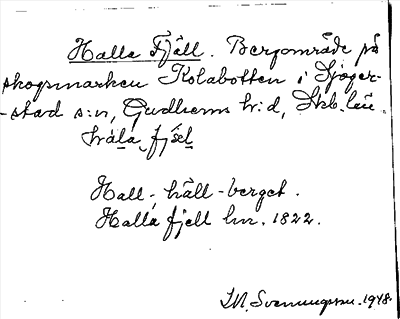 Halle Fjäll. Bergområde på
skogsmarken Kolabotten i Sjoger-
-stad s:n, Gudhems h:d, Skb. län.
hála fjæl
Hall-, häll-berget.
Halla fjell hm. 1822.
I.M. Svenungsson. 1948.